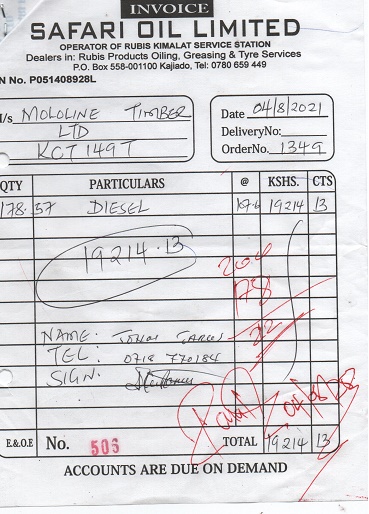 INVOICE
SAFARI OIL LIMITED
OPERATOR OF RUBIS KIMALAT SERVICE STATION
Dealers in: Rubis Products Oiling, Greasing & Tyre Services
P.O. Box 558-001100 Kajiado, Tel: 0780 659 449
N No. P051408928L
/s MOLOLINE TIMBER
LTD
KCT 149T
Date 04/8/2021
DeliveryNo:
OrderNo. 1349
QTY PARTICULARS @ KSHS. CTS
178.57 DIESEL 107.6 19214 13
19214.13
78
22
NAME:
TEL: 0718 770184
SIGN:
Paid
E.&O.E No. 506 TOTAL 19214 13
ACCOUNTS ARE DUE ON DEMAND